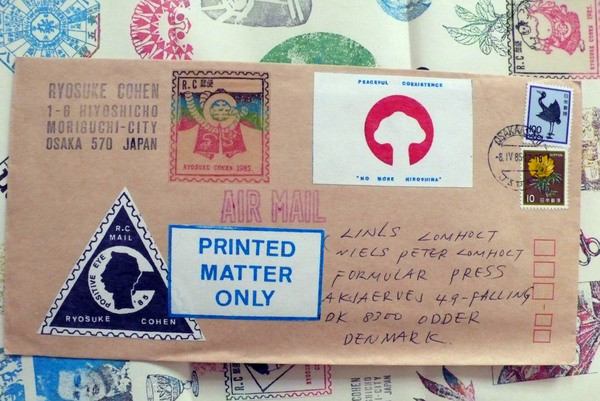 RYOSUKE COHEN
1-6 HIYOSHICHO
MORIGUCHI-CITY
OSAKA 570 JAPAN
R.C 郵便
RYOSUKE COHEN 1985.
AIR MAIL
PEACEFUL COEXISTENCE
"NO MORE HIROSHIMA"
100
日本郵便
10
日本郵便
OSAKA
-8.IV.85
R.C
MAIL
POSITIVE EYE
85
RYOSUKE COHEN
PRINTED
MATTER
ONLY
LINKS LOMHOLT
NIELS PETER LOMHOLT
FORMULAR PRESS
AKJAERVEJ 49-FALLING
DK 8300 ODDER
DENMARK.